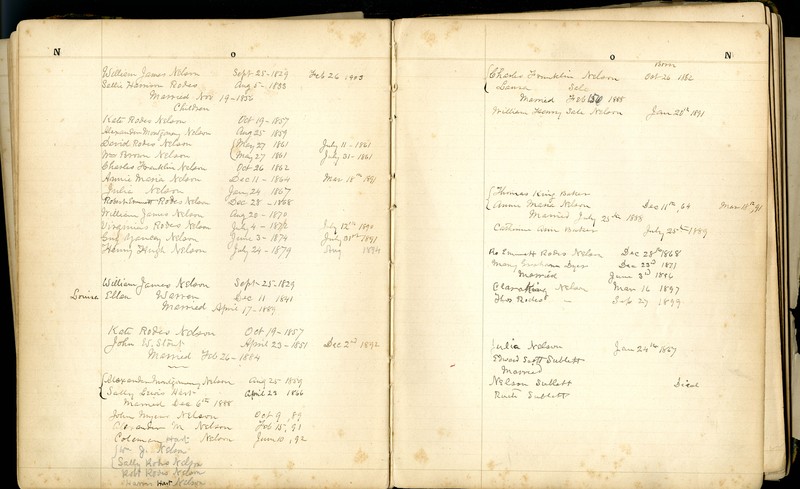 N O
William James Nelson Sept 25-1829 Feb 26 1903
Sallie Harrison Rodes Aug 5-1833
Married Nov 19-1856
Children
Kate Rodes Nelson Oct 19-1857
Alexander Montgomery Nelson Aug 25 1859
David Rodes Nelson May 27 1861 July 11-1861
Wm Brown Nelson May 27 1861 July 31-1861
Charles Franklin Nelson Oct 26 1862
Annie Maria Nelson Dec 11-1864 Mar 18th 1891
Julia Nelson Jany 24 1867
Robert Emmett Rodes Nelson Dec 28-1868
William James Nelson Aug 20-1870
Virginius Rodes Nelson July 4-1872 July 12th 1890
Nelson June 3-1874 July 31st 1891
Henry Hugh Nelson July 24-1879 Aug 1894
William James Nelson Sept-25-1829
Louisa Ellen Warren Dec 11 1841
Married April 17-1889
Kate Rodes Nelson Oct 19-1857
John W. April 23-1851 Dec 2nd 1892
Married Feb 26-1884
Alexander Montgomery Nelson Aug 25 1859
Sally Lewis Hart April 23 1866
Married Dec 6th 1888
John Nelson Oct 9, 89
Alexander M Nelson Feb 15, 91
Coleman Hart Nelson June 10, 92
Wm J. Nelson
Sally Rodes Nelson
Robt Rodes Nelson
Hart Nelson
O N
Born
Charles Franklin Nelson Oct 26 1862
Laura Sale
Married Feb 1888
William Henry Sale Nelson Jan 28th 1891
Thomas King Baker
Annie Maria Nelson Dec 11th, 64 Mar 18th, 91
Married July 25th 1888
Catherine Ann Baker July 25th 1889
Ro Emmett Rodes Nelson Dec 28th 1868
Mary Graham Dyer Dec 23d 1871
Married June 3rd 1896
Clara King Nelson Mar 16 1897
Rodes " 27 1899
Julia Nelson Jan 24th 1867
Edward Scott Sublett
Married
Nelson Sublett Died
Ruth Sublett